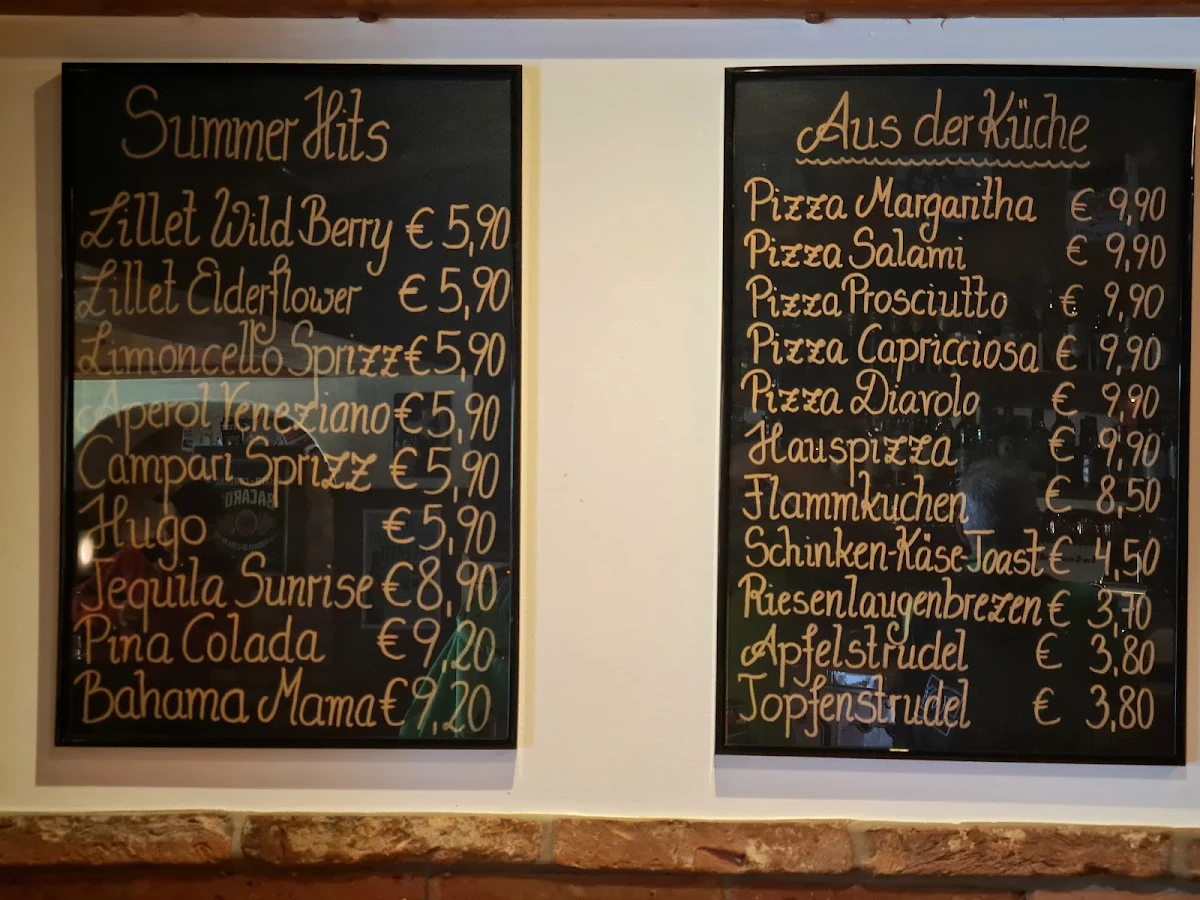 Summer Hits
Lillet Wild Berry € 5,90
Lillet Elderflower € 5,90
Limoncello Sprizz € 5,90
Aperol Veneziano € 5,90
Campari Sprizz € 5,90
Hugo € 5,90
Tequila Sunrise € 8,90
Pina Colada € 9,20
Bahama Mama € 9,20
Aus der Küche
Pizza Margaritha € 9,90
Pizza Salami € 9,90
Pizza Prosciutto € 9,90
Pizza Capricciosa € 9,90
Pizza Diavolo € 9,90
Hauspizza € 9,90
Flammkuchen € 8,50
Schinken-Käse Toast € 4,50
Riesenlaugenbrezen € 3,70
Apfelstrudel € 3,80
Topfenstrudel € 3,80
BACARD